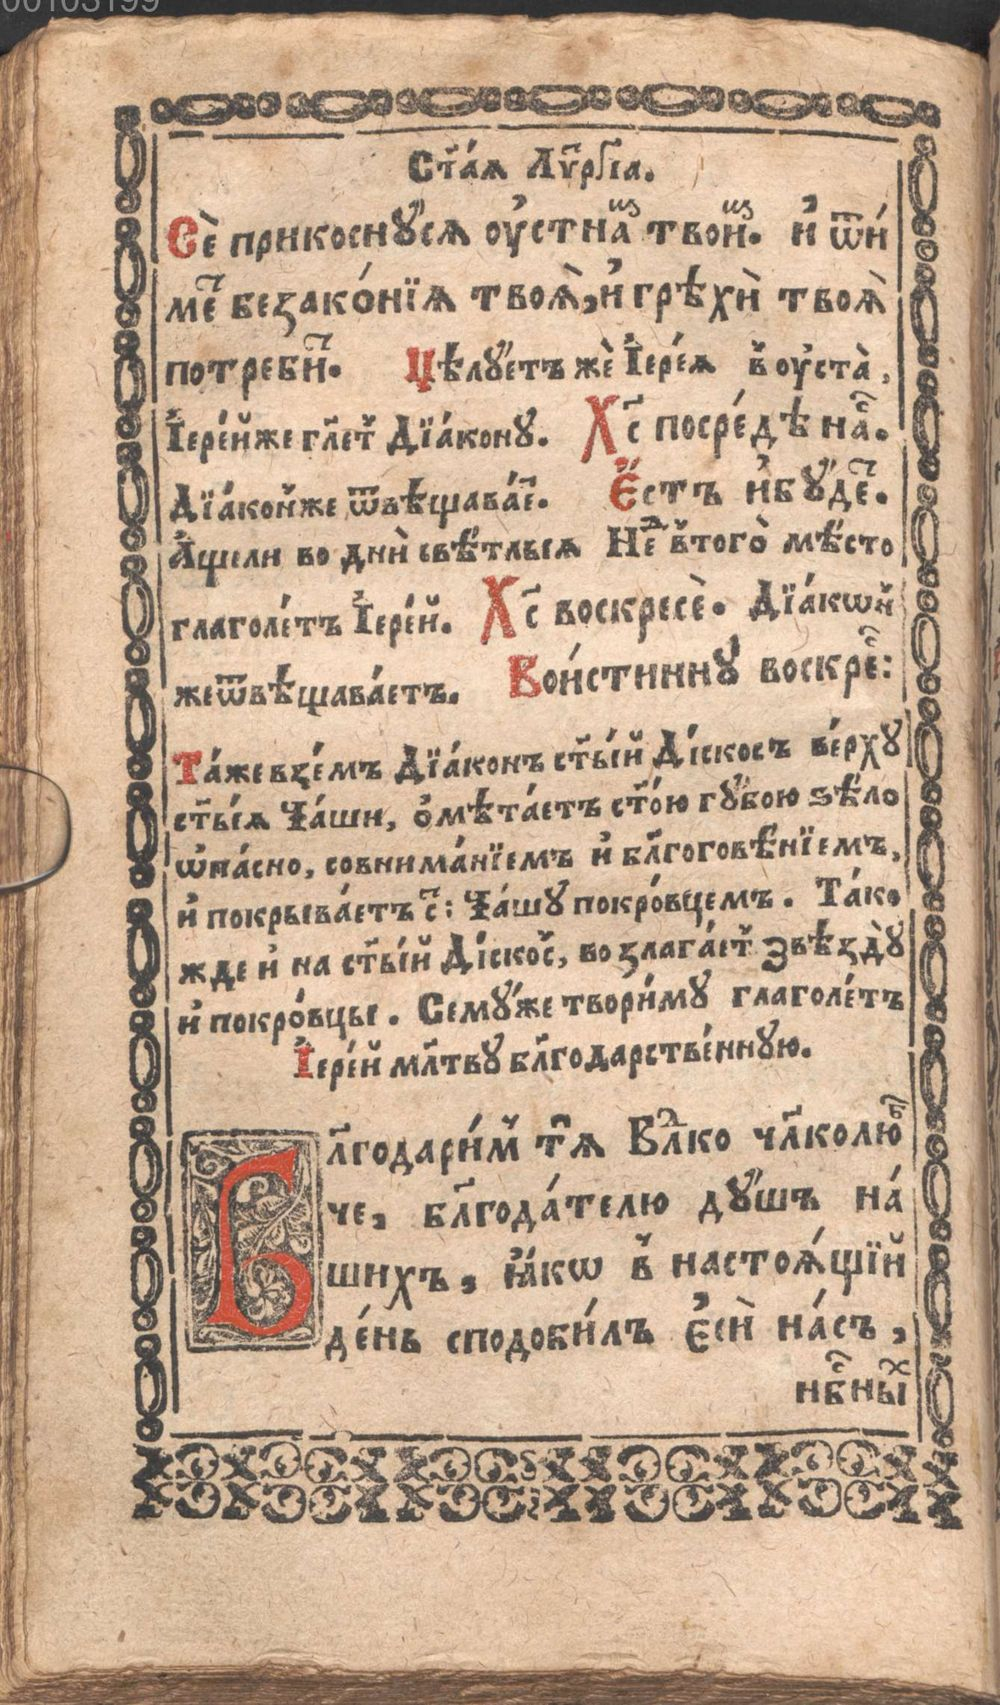 00103199
Ст҃а́ѧ Лѵ҃рг҃іа.
Се̏ прикоснꙋ́сѧ оу҆стна́ⷨ твои́ⷨ. и҆ ѿи́
ме́ⷭ беззако́нїѧ твоѧ̀, и҆ грѣхи̏ твоѧ̀
потреби́ⷭ. Цѣлꙋ́етъ же̏ І҆ере́ѧ в̾ оу҆ста̀,
І҆ере́йже гл҃ет̾ Дїа́конꙋ. Хс҃ посре́дѣ на́ⷭ.
Дїа́кон̾же ѿвѣщава́еⷮ. Є҆́стъ и҆бꙋ́деⷮ.
А҆́щели во дни̏ свѣ́тлыѧ Неⷣ в̾того̀ мѣ́сто
глаголе́тъ І҆ере́й. Хс҃ воскресе̏. Дїа́кѡн̾
жеѿвѣщава́етъ. Вои́стиннꙋ воскре́ⷭ:
Та́жевзе́мъ Дїа́конъ ст҃ы́й Ді́скосъ ве́рхꙋ
ст҃ы́ѧ Ча́ши, ѻ҆мѣта́етъ ст҃о́ю гꙋ́бою ѕѣ́ло
ѡ҆па́сно, совнима́нїемъ и҆ бл҃гоговѣ́нїемъ,
и҆ покрыва́етъ с҃: Ча́шꙋ покро́вцемъ. Та́ко
жде и҆ на ст҃ы́й Ді́скос̾, возлага́ет̾ Звѣздꙋ̀
и҆ покро́вцы. Семꙋ́же твори́мꙋ глаголе́тъ
І҆ере́й мл҃твꙋ бл҃годарстве́ннꙋю.
Бл҃годари́м̾ тѧ̀ Влⷣко чл҃колю́ⷠ
че, бл҃года́телю дꙋ́шъ на́
шихъ, ꙗ҆́кѡ в̾ настоѧ́щїй
де́нь сподоби́лъ є҆сѝ на́съ,
нбⷭ҇ныⷯ